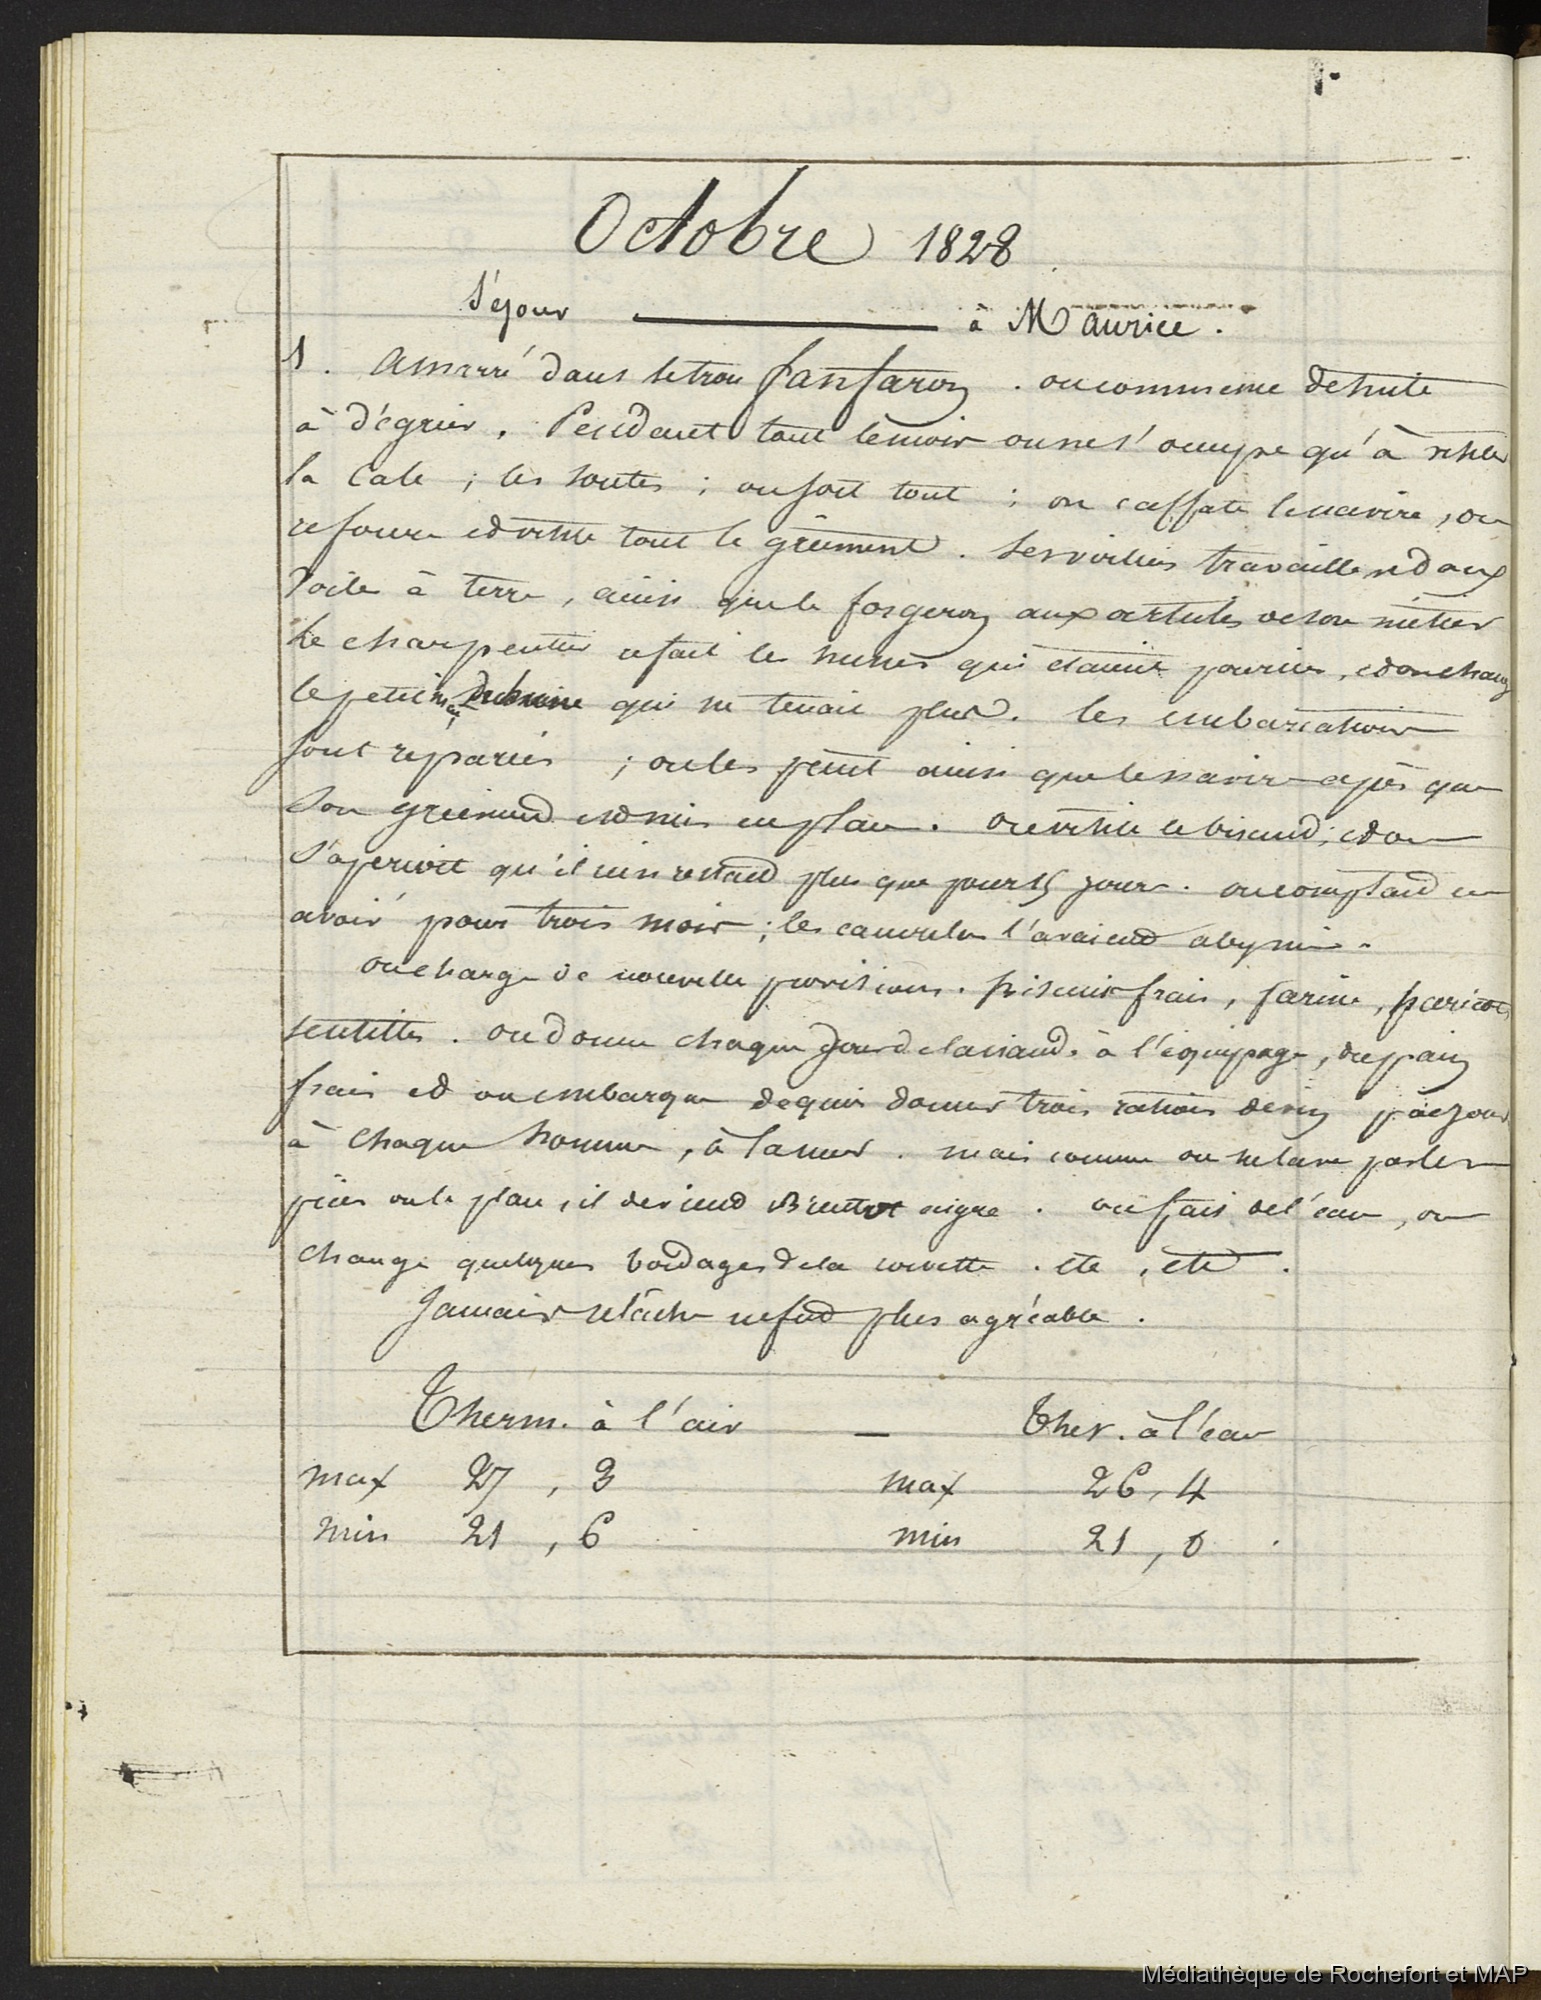 Octobre 1828
Séjour à Maurice.
1. Amarré dans le trou fanfaron. on commence de suite
à dégréer. Pendant tout le mois on ne s'occupe qu'à visiter
la Cale ; les soutes ; on sort tout ; on calfate le navire, on
refourre et visite tout le gréement. Les voiliers travaillent aux
voiles à terre, ainsi que le forgeron aux articles de son métier
Le charpentier refait les hunes qui étaient pourries, et on change
le petit mat de hune qui ne tenait plus. les embarcations
sont réparées ; on les peint ainsi que le navire après que
Son gréement est mis en place. on visite le biscuit ; et on
s'aperçoit qu'il n'en restait plus que pour 15 jours. on comptait en
avoir pour trois mois ; les cancrelas l'avaient abymé.
on charge de nouvelles provisions. biscuit frais, farine, haricots,
lentilles. on donne chaque jour de la viande à l'équipage, du pain
frais et on embarque de quoi donner trois rations de vin par jour
à chaque homme, à la mer. mais comme on ne lave pas les
pièces on le place, il devient Bientot aigre. on fait de l'eau, on
change quelques bordages de la corvette. etc, etc.
Jamais relâche ne fut plus agréable.
Therm. à l'air — Ther. à l'eau
max 27, 3 max 26, 4
min 21, 6 min 21, 0.
Médiathèque de Rochefort et MAP